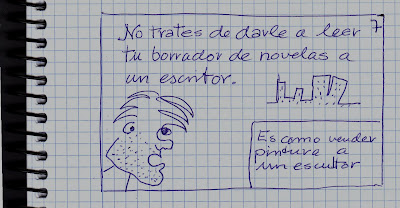 No trates de darle a leer 7
tu borrador de novelas a
un escritor.
Es como vender
pintura a
un escultor